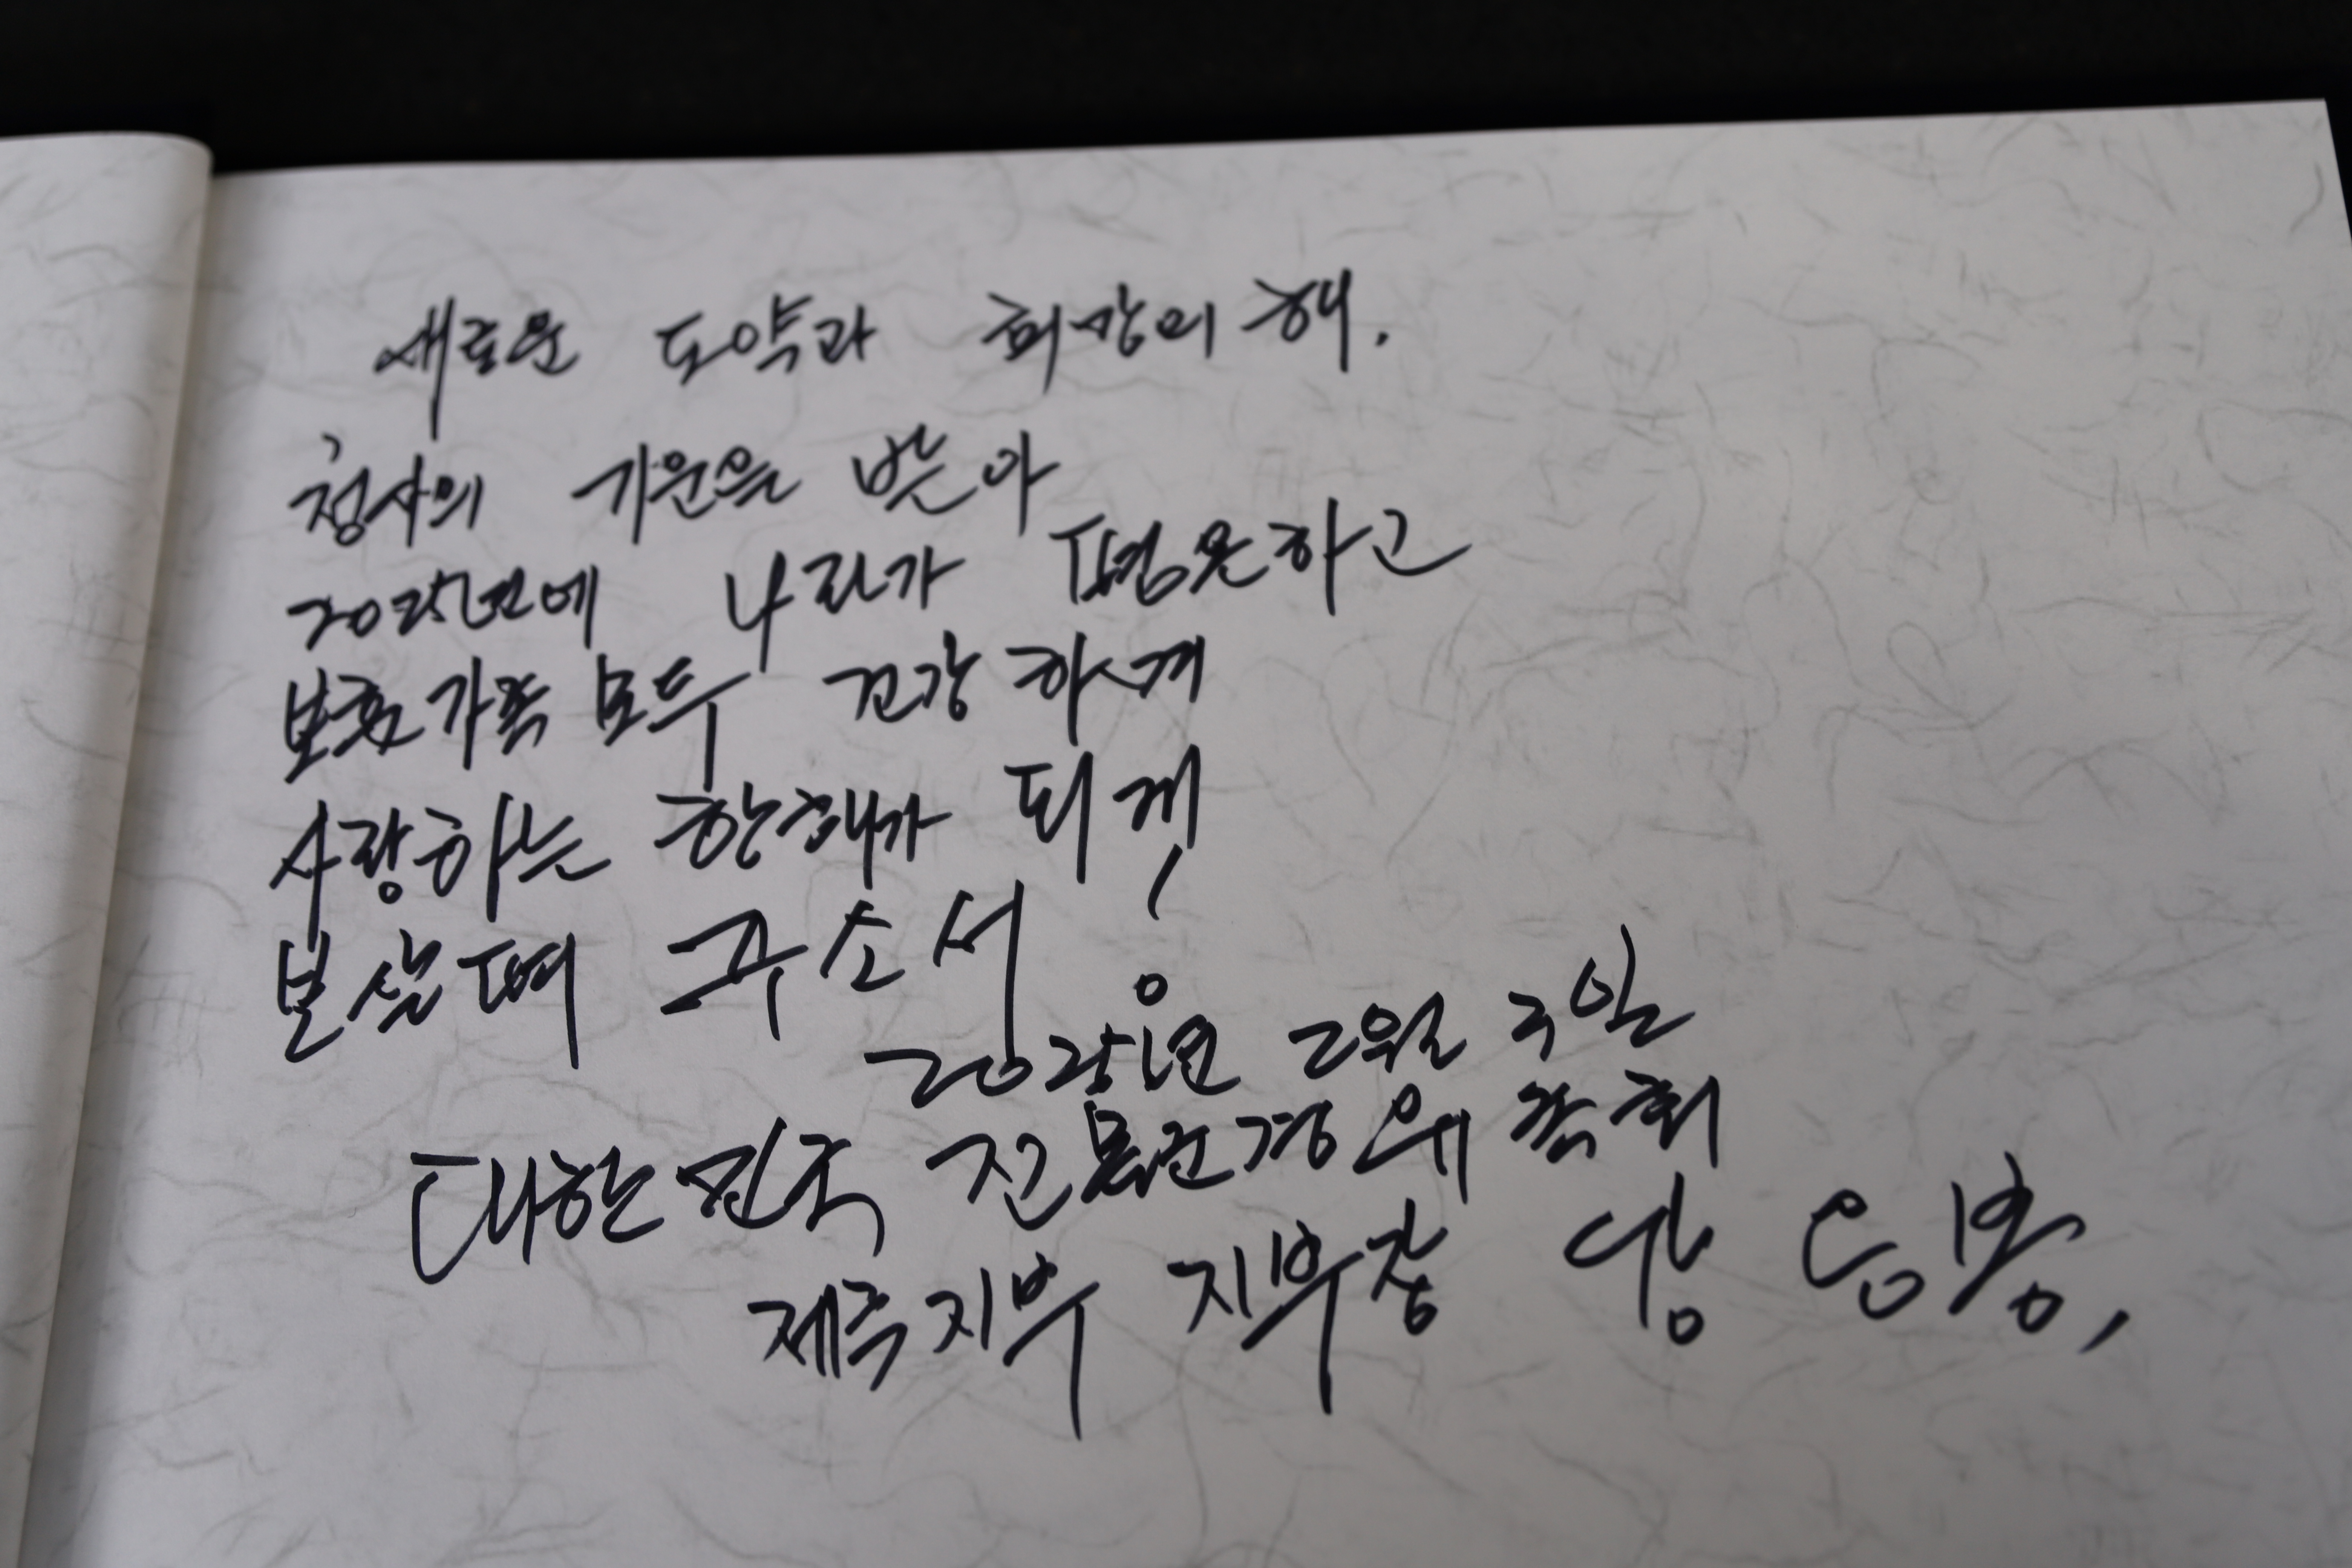 새로운 도약과 희망의 해.
청사의 기운을 받아
2025년에 나라가 평온하고
보훈가족 모두 건강하게
사랑하는 한해가 되게
보살펴 주소서!
2025년 2월 3일
대한민국 전몰군경유족회
제주지부 지부장 강 응봉,